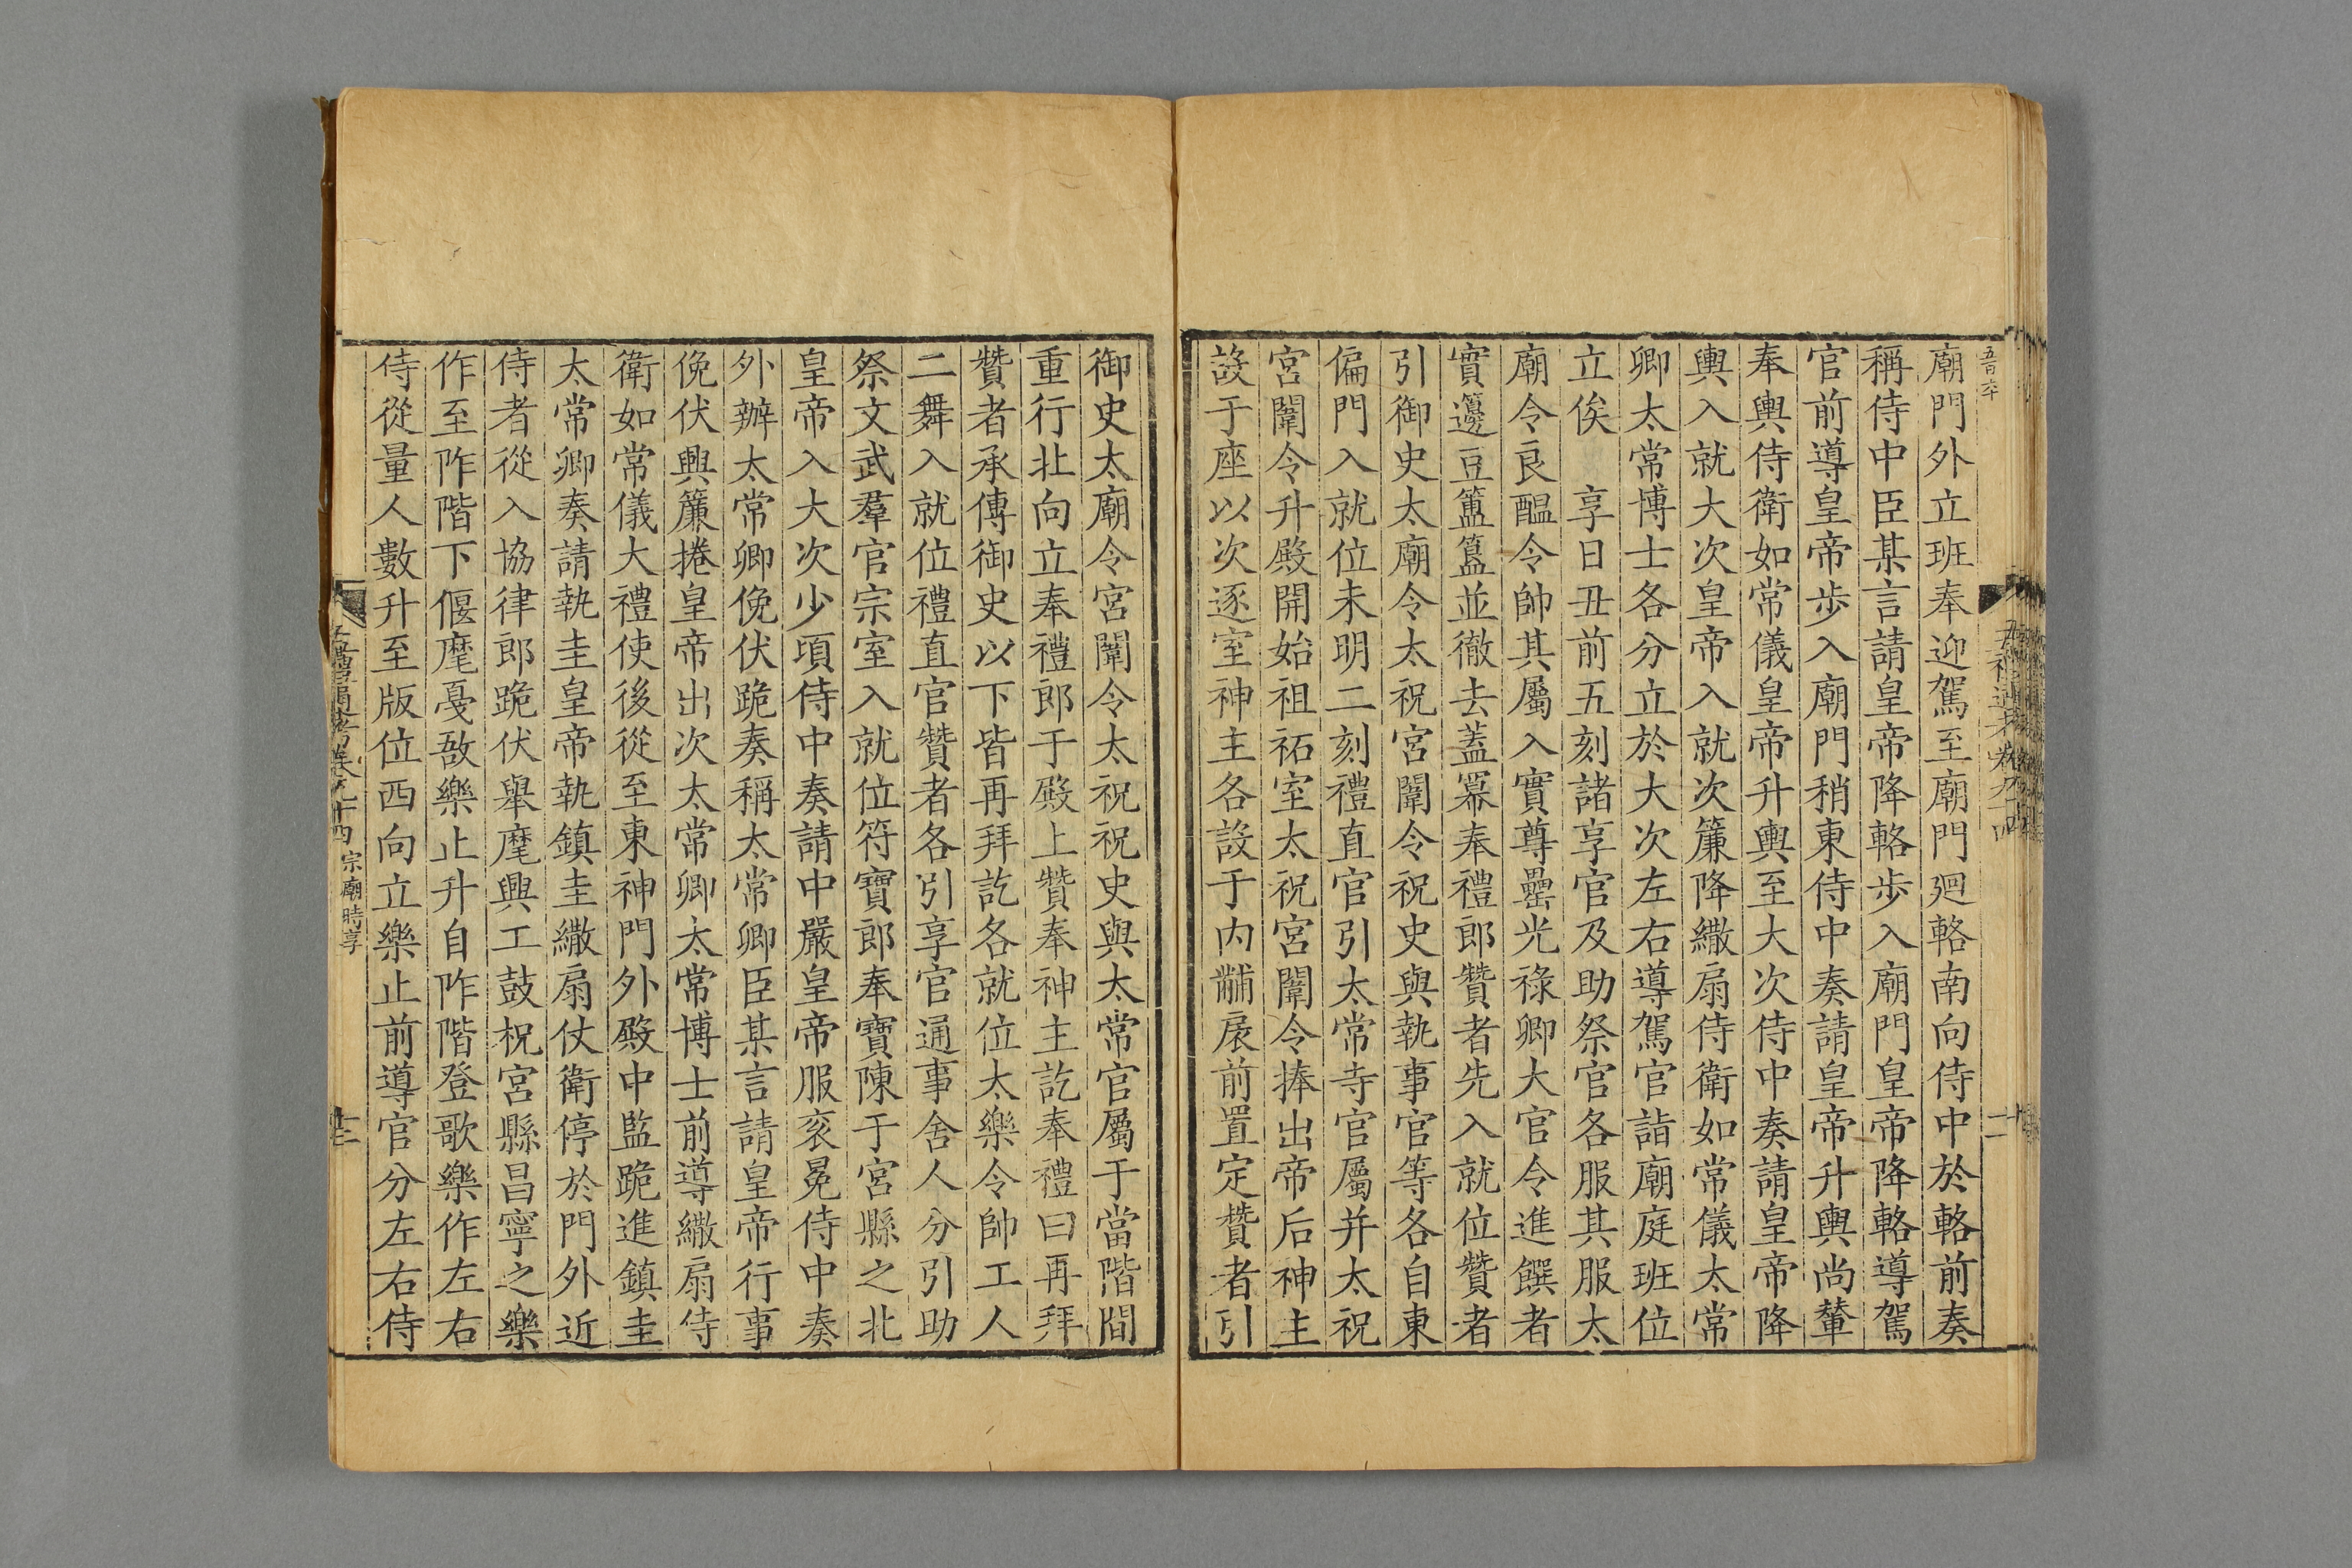 廟門外立班奉迎駕至廟門廻輅南向侍中於輅前奏
稱侍中臣某言請皇帝降輅步入廟門皇帝降輅導駕
官前導皇帝步入廟門稍東侍中奏請皇帝升輿尚輦
奉輿侍衛如常儀皇帝升輿至大次侍中奏請皇帝降
輿入就大次皇帝入就次簾降繖扇侍衛如常儀太常
卿太常博士各分立於大次左右導駕官詣廟庭班位
立俟　享日丑前五刻諸享官及助祭官各服其服太
廟令良醖令帥其屬入實尊罍光祿卿大官令進饌者
實籩豆簠簋並徹去蓋冪奉禮郎贊者先入就位贊者
引御史太廟令太祝宮闈令祝史與執事官等各自東
偏門入就位未明二刻禮直官引太常寺官屬并太祝
宮闈令升殿開始祖祏室太祝宮闈令捧出帝后神主
設于座以次逐室神主各設于內黼扆前置定贊者引
御史太廟令宮闈令太祝祝史與太常官屬于當階間
重行北向立奉禮郎于殿上贊奉神主訖奉禮曰再拜
贊者承傳御史以下皆再拜訖各就位太樂令帥工人
二舞入就位禮直官贊者各引享官通事舍人分引助
祭文武羣官宗室入就位符寶郎奉寶陳于宮縣之北
皇帝入大次少頃侍中奏請中嚴皇帝服衮冕侍中奏
外辦太常卿俛伏跪奏稱太常卿臣某言請皇帝行事
俛伏興簾捲皇帝出次太常卿太常博士前導繖扇侍
衛如常儀大禮使後從至東神門外殿中監跪進鎮圭
太常卿奏請執圭皇帝執鎮圭繖扇仗衛停於門外近
侍者從入協律郎跪伏舉麾興工鼓柷宮縣昌寧之樂
作至阼階下偃麾戛敔樂止升自阼階登歌樂作左右
侍從量人數升至版位西向立樂止前導官分左右侍
五禮通考卷九十四 宗廟時享 十二